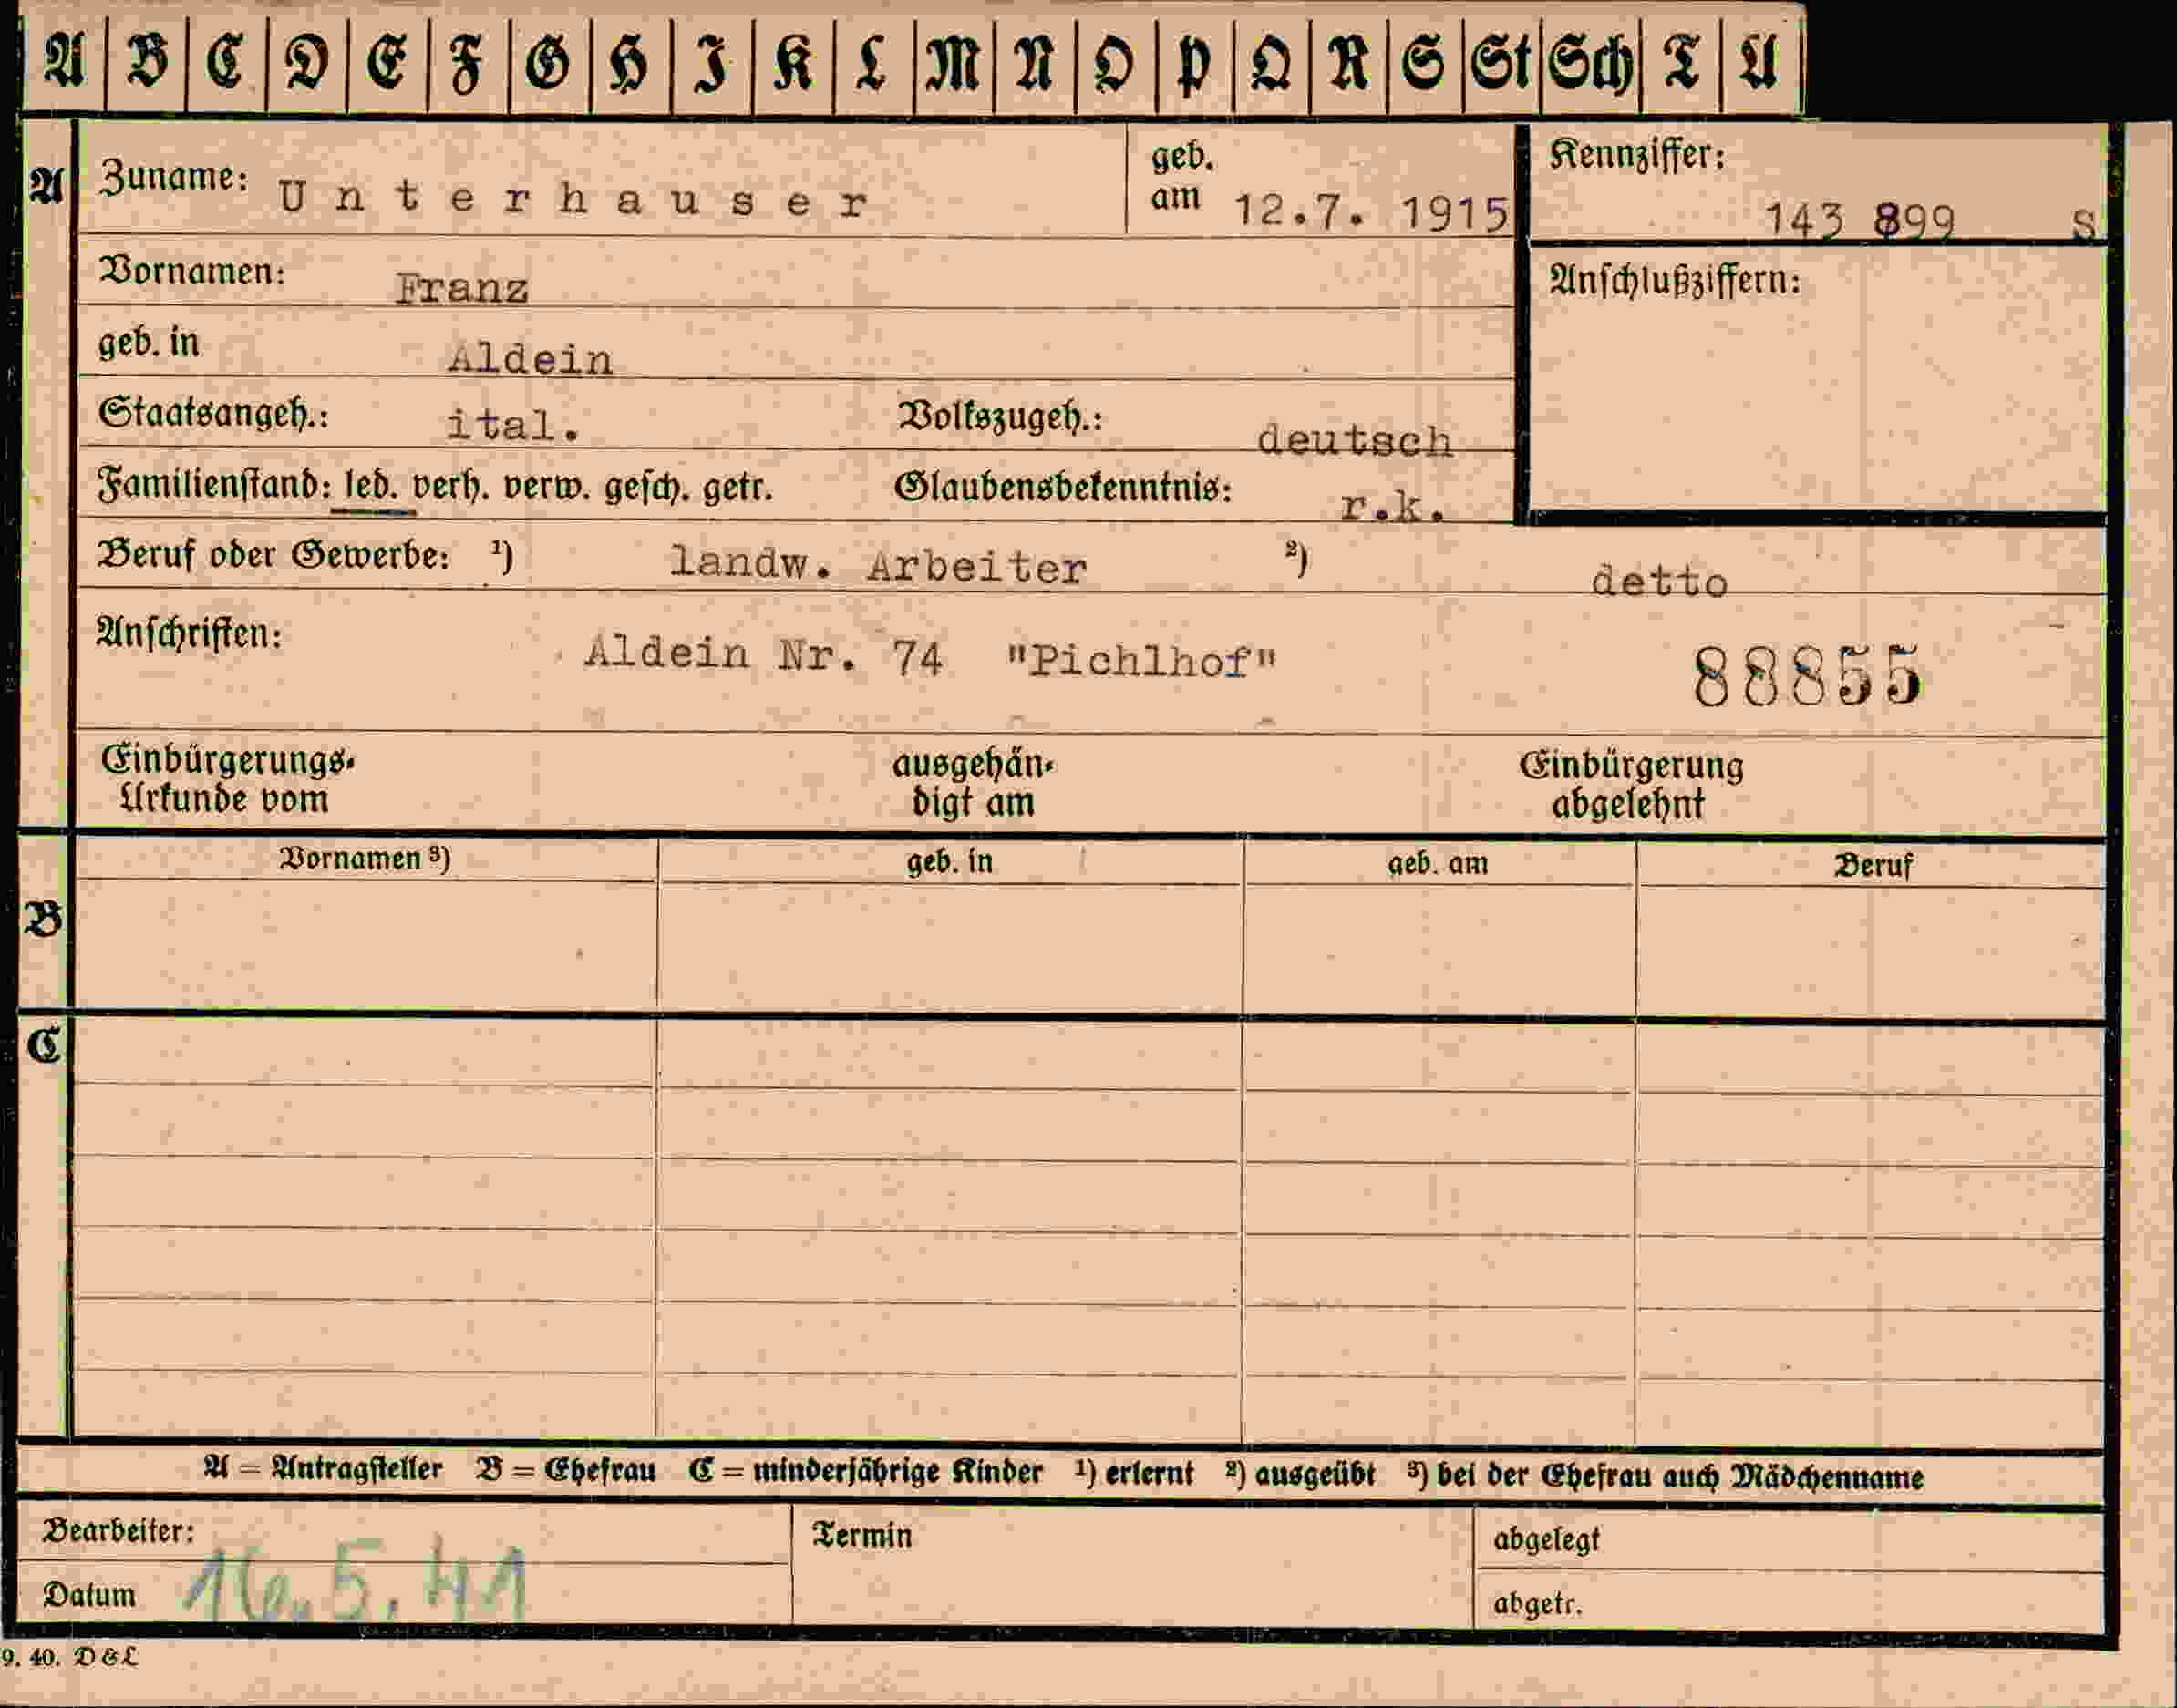 A B C D E F G H I K L M N O P Q R S St Sch T U
A Zuname: Unterhauser geb. am 12.7. 1915 Kennziffer: 143 899 S
Vornamen: Franz Anschlußziffern:
geb. in Aldein
Staatsangeh.: ital. Volkszugeh.: deutsch
Familienstand: led. verh. verw. gesch. getr. Glaubensbekenntnis: r.k.
Beruf oder Gewerbe: ¹) landw. Arbeiter ²) detto
Anschriften: Aldein Nr. 74 "Pichlhof" 88855
Einbürgerungs- ausgehän- Einbürgerung
Urkunde vom digt am abgelehnt
Vornamen ³) geb. in geb. am Beruf
B
C
A = Antragsteller B = Ehefrau C = minderjährige Kinder ¹) erlernt ²) ausgeübt ³) bei der Ehefrau auch Mädchenname
Bearbeiter: Termin abgelegt
Datum 16.5.41 abgetr.
9. 40. D & L